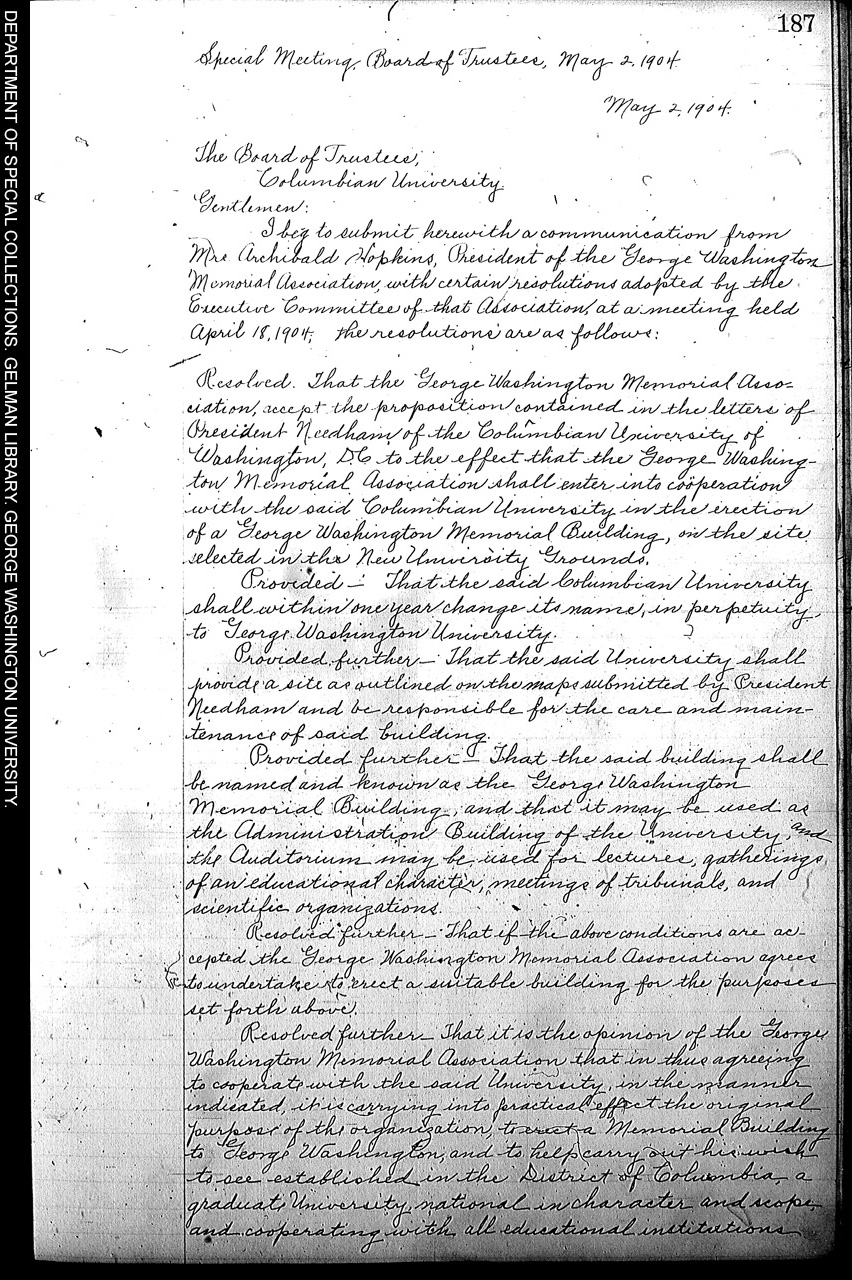 187
Special Meeting, Board of Trustees, May 2, 1904.
May 2, 1904.
The Board of Trustees,
Columbian University.
Gentlemen:
I beg to submit herewith a communication from
Mrs Archibald Hopkins, President of the George Washington
Memorial Association, with certain resolutions adopted by the
Executive Committee of that Association, at a meeting held
April 18, 1904; the resolutions are as follows:
Resolved. That the George Washington Memorial Asso-
ciation, accept the proposition contained in the letters of
President Needham of the Columbian University of
Washington, D.C. to the effect that the George Washing-
ton Memorial Association shall enter into coöperation
with the said Columbian University in the erection
of a George Washington Memorial Building, on the site
selected in the New University Grounds.
Provided — That the said Columbian University
shall within one year change its name, in perpetuity,
to George Washington University.
Provided further — That the said University shall
provide a site as outlined on the maps submitted by President
Needham and be responsible for the care and main-
tenance of said building.
Provided further — That the said building shall
be named and known as the George Washington
Memorial Building, and that it may be used as
the Administration Building of the University, and
the Auditorium may be used for lectures, gatherings
of an educational character, meetings of tribunals, and
scientific organizations.
Resolved further — That if the above conditions are ac-
cepted the George Washington Memorial Association agrees
to undertake to erect a suitable building for the purposes
set forth above.
Resolved further — That it is the opinion of the George
Washington Memorial Association that in thus agreeing
to cooperate with the said University, in the manner
indicated, it is carrying into practical effect the original
purpose of the organization, to erect a Memorial Building
to George Washington, and to help carry out his wish
to see established in the District of Columbia, a
graduate University, national in character and scope
and cooperating with all educational institutions
DEPARTMENT OF SPECIAL COLLECTIONS. GELMAN LIBRARY. GEORGE WASHINGTON UNIVERSITY.